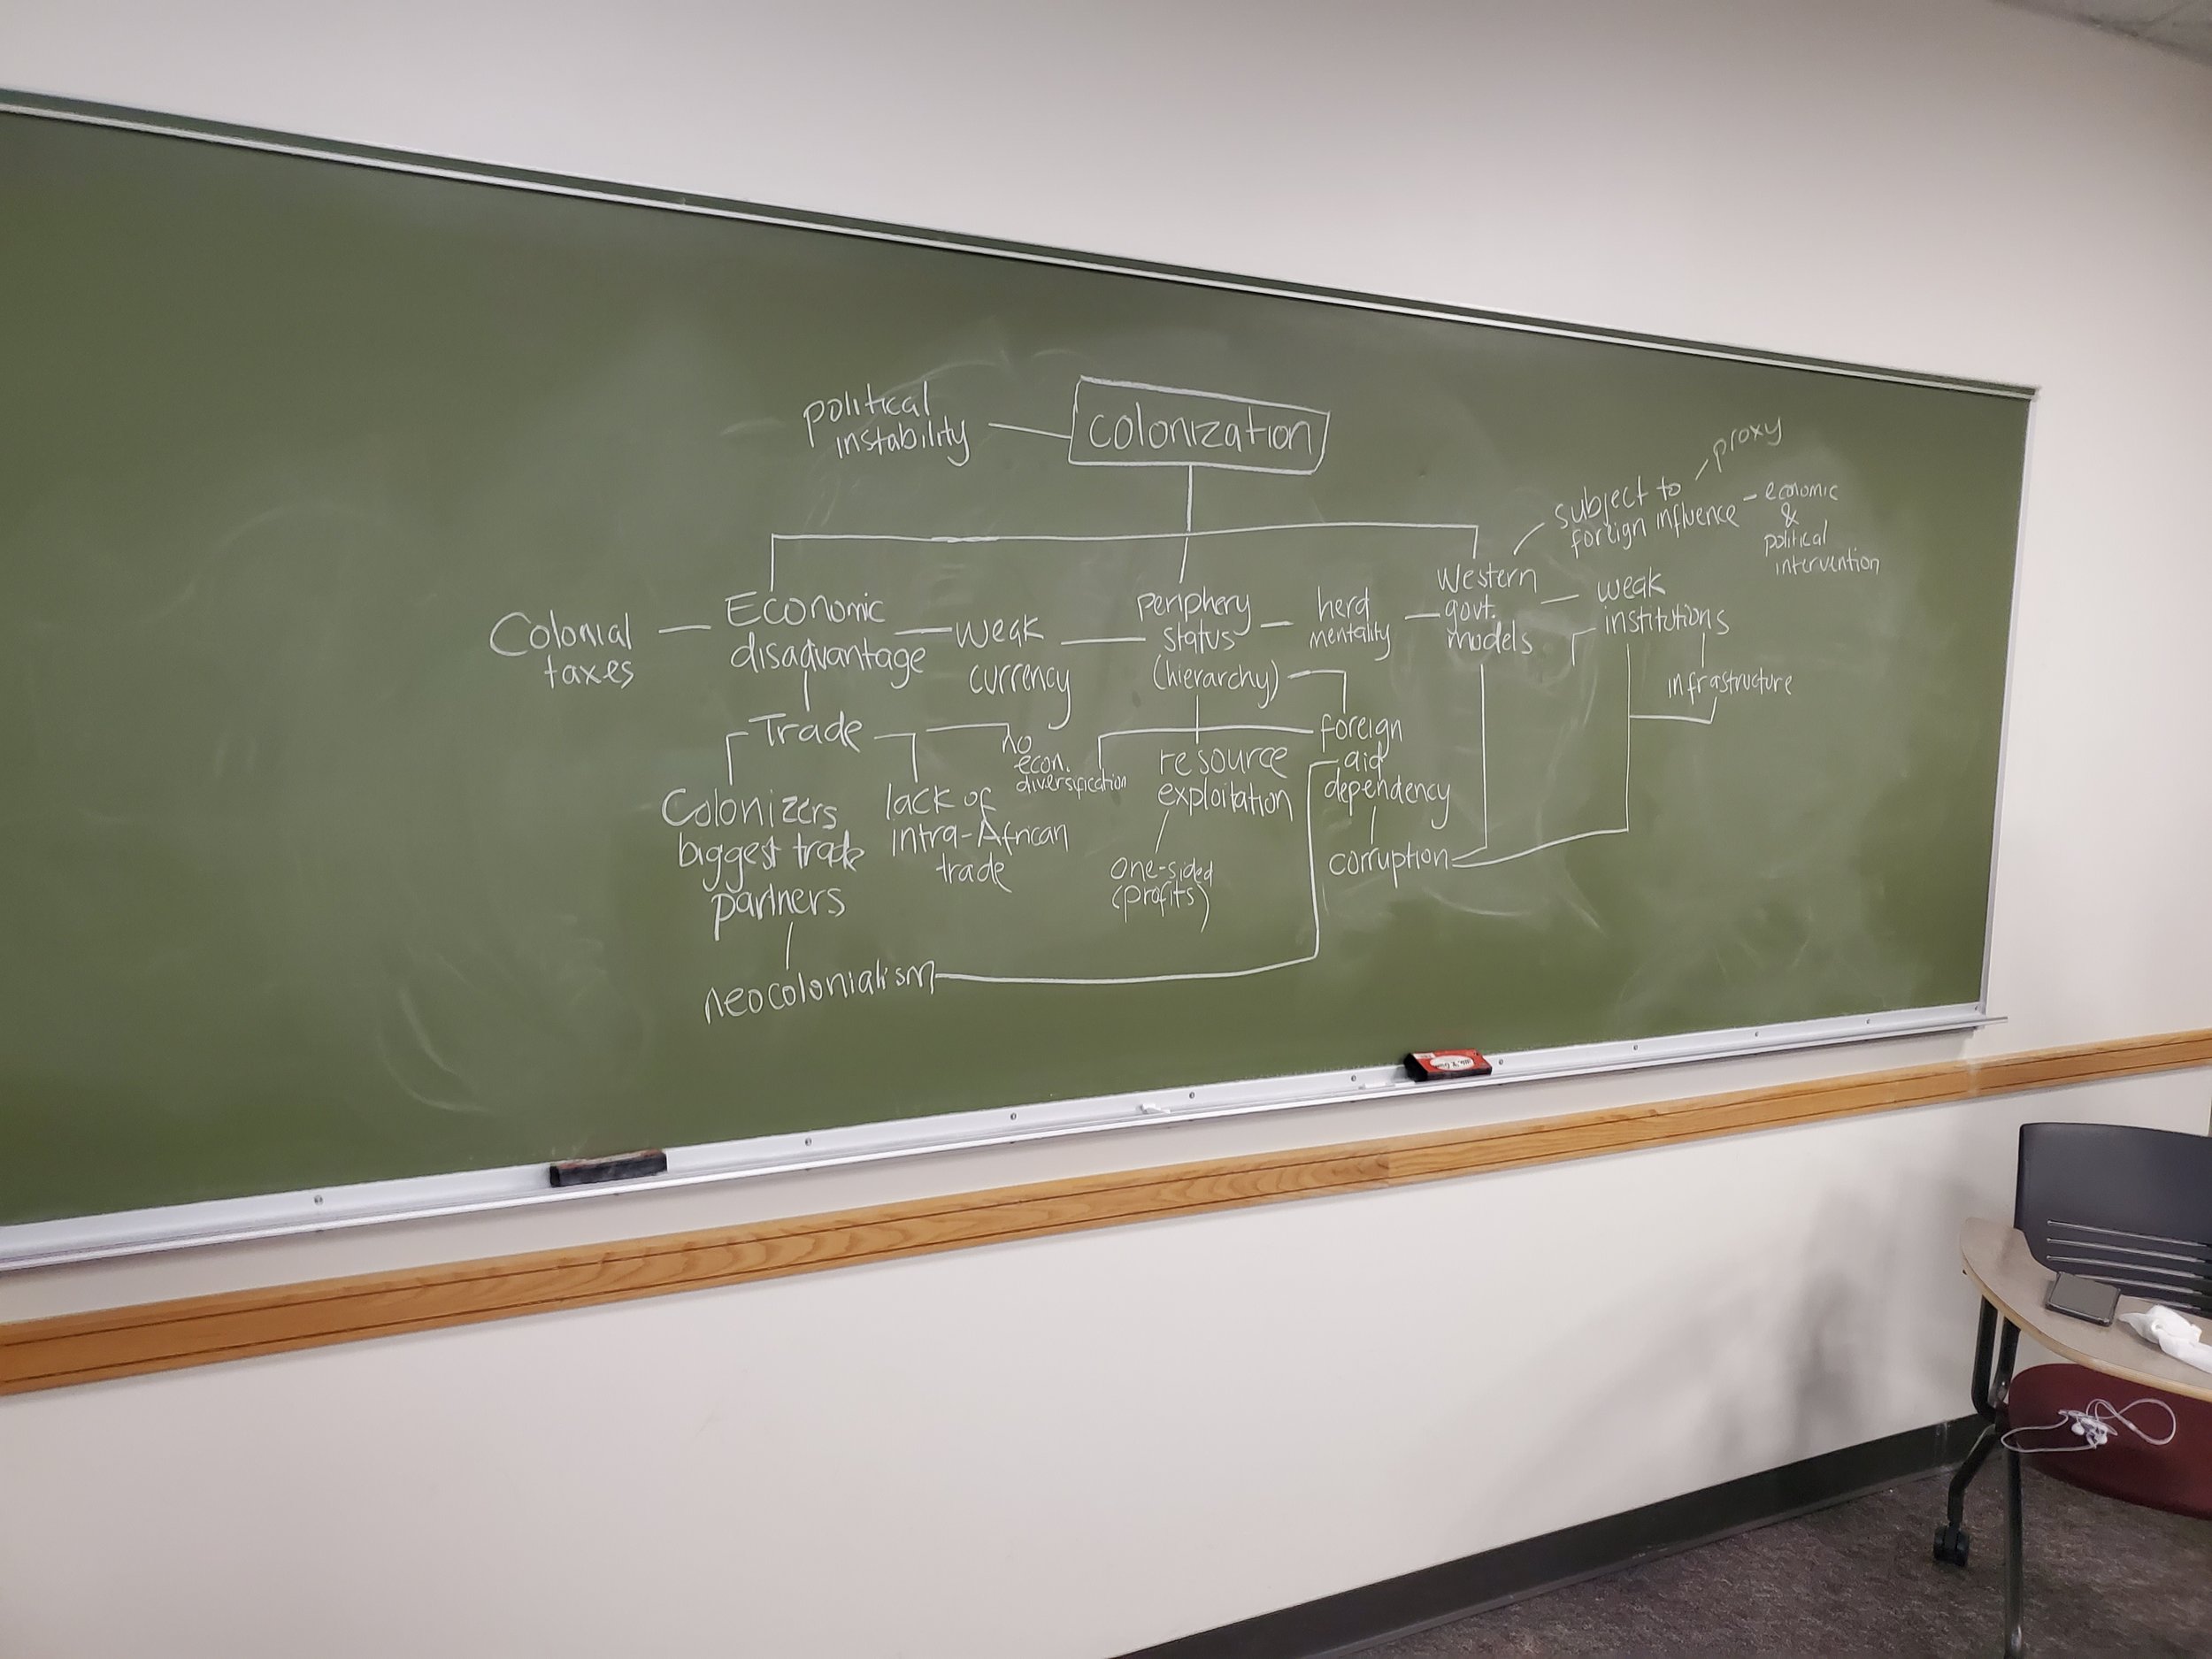 political
instability
colonization
proxy
subject to
foreign influence
economic
&
political
intervention
Colonial
taxes
Economic
disadvantage
weak
currency
periphery
status
(hierarchy)
herd
mentality
Western
govt.
models
weak
institutions
infrastructure
Trade
no
econ.
diversification
Colonizers
biggest trade
partners
lack of
intra-African
trade
resource
exploitation
one-sided
(profits)
foreign
aid
dependency
corruption
neocolonialism